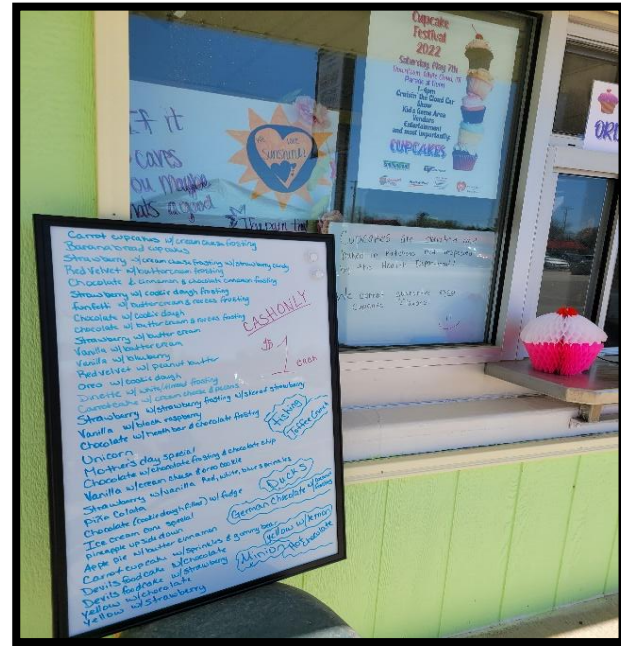 Cupcake
Festival
2022
Saturday May 7th
Parade at
1-4pm
Cruisin The Cloud Car
Show
Kid's Game Area
Vendors
Entertainment
and most importantly:
CUPCAKES
ORD
If it
cares
ou maybe
hats a good
We Love
Sunshine!
CUPCAKES are
baked in kitchens not inspected
by the Health Department
Carrot cupcakes w/cream cheese frosting
Banana bread cupcakes
Strawberry w/cream cheese frosting w/strawberry candy
Red Velvet w/buttercream frosting
Chocolate & cinnamon & chocolate cinnamon frosting
Strawberry w/cookie dough frosting
funfetti w/buttercream & nerds frosting
Chocolate w/cookie dough
chocolate w/buttercream & nerds frosting
Strawberry w/buttercream
Vanilla w/buttercream
Vanilla w/blueberry
Redvelvet w/peanut butter
Oreo w/cookie dough
w/white/almond frosting
Carrot cake w/cream cheese & pecans
Strawberry w/strawberry frosting w/sliced strawberry
Vanilla w/black raspberry
Chocolate w/heath bar & chocolate frosting
Unicorn
Mother's day special
Chocolate w/chocolate frosting & chocolate chip
Vanilla w/cream cheese & oreo cookie
Strawberry w/vanilla Red, white, blue sprinkles
Piña Colata
Chocolate (cookie dough filled) w/fudge
Ice cream cone special
pineapple upside down
Apple pie w/butter cinnamon
Carrot cupcake w/sprinkles & gummy bear
Devils food cake w/chocolate
Devils food cake w/strawberry
yellow w/chocolate
yellow w/strawberry
CASH ONLY
$1
cash
fishing
Toffee Crunch
Ducks
German Chocolate w/ frosting
yellow w/lemon
Minion
Hot Chocolate